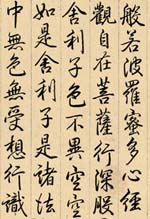 般若波羅蜜多心經
觀自在菩薩行深般
舍利子色不異空空
如是舍利子是諸法
中無色無受想行識